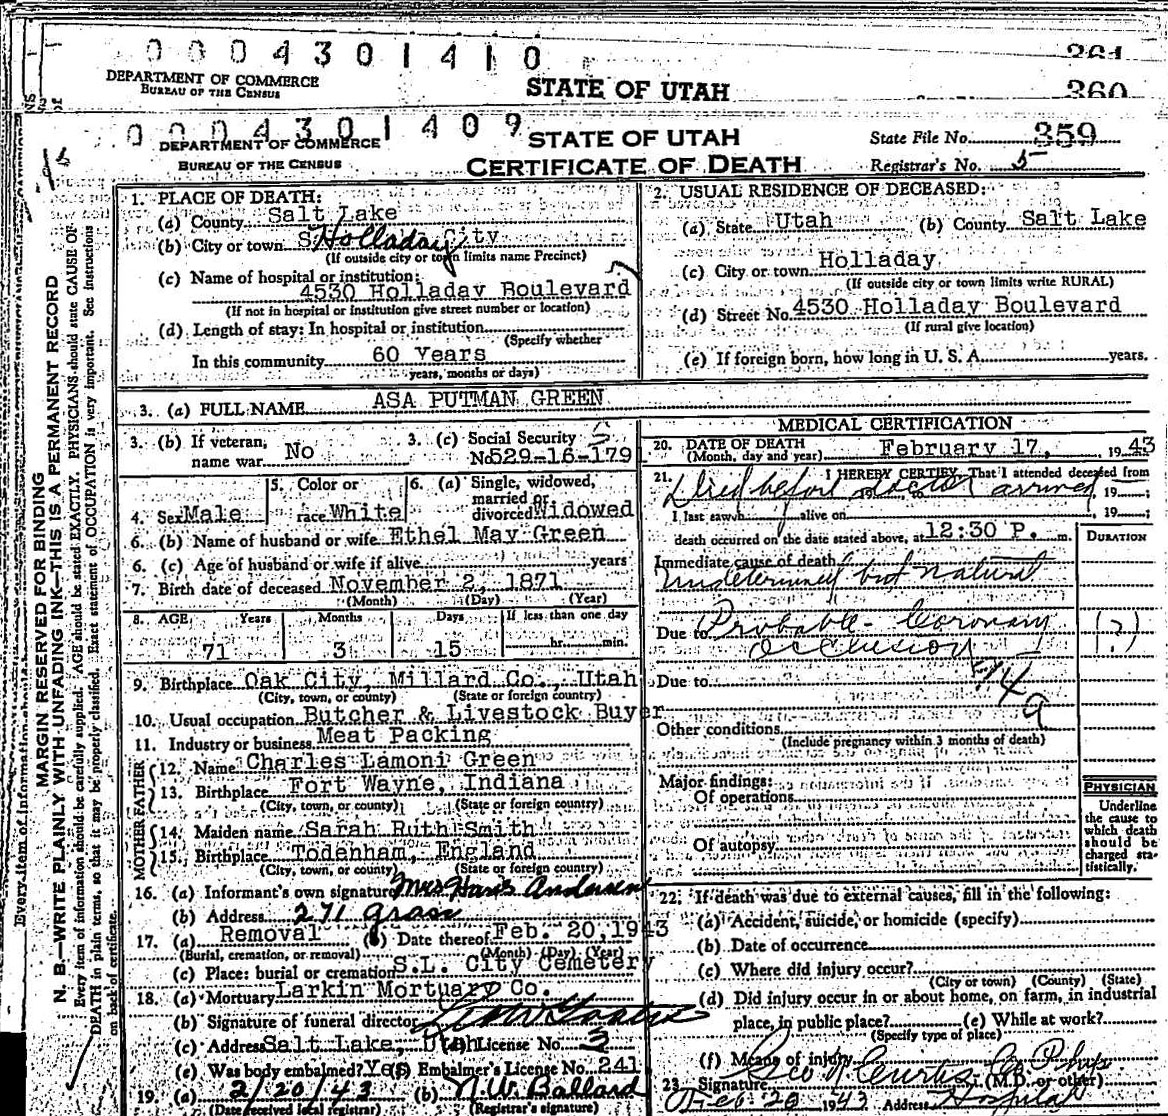 0004301410
DEPARTMENT OF COMMERCE
BUREAU OF THE CENSUS
STATE OF UTAH
361
360
0004301409
DEPARTMENT OF COMMERCE
BUREAU OF THE CENSUS
STATE OF UTAH
CERTIFICATE OF DEATH
State File No. 359
Registrar's No. 5
MARGIN RESERVED FOR BINDING
N. B.—WRITE PLAINLY WITH UNFADING INK—THIS IS A PERMANENT RECORD
Every item of information should be carefully supplied. AGE should be stated EXACTLY. PHYSICIANS should state CAUSE OF
DEATH in plain terms, so that it may be properly classified. Exact statement of OCCUPATION is very important. See instructions
on back of certificate.
1. PLACE OF DEATH:
(a) County Salt Lake
(b) City or town Holladay City
(If outside city or town limits name Precinct)
(c) Name of hospital or institution:
4530 Holladay Boulevard
(If not in hospital or institution give street number or location)
(d) Length of stay: In hospital or institution
(Specify whether
In this community 60 Years
years, months or days)
2. USUAL RESIDENCE OF DECEASED:
(a) State Utah (b) County Salt Lake
(c) City or town Holladay
(If outside city or town limits write RURAL)
(d) Street No. 4530 Holladay Boulevard
(If rural give location)
(e) If foreign born, how long in U. S. A. years.
3. (a) FULL NAME ASA PUTMAN GREEN
3. (b) If veteran, name war No
3. (c) Social Security No 529-16-1791
4. Sex Male
5. Color or race White
6. (a) Single, widowed, married or divorced Widowed
6. (b) Name of husband or wife Ethel May Green
6. (c) Age of husband or wife if alive years
7. Birth date of deceased November 2, 1871
(Month) (Day) (Year)
8. AGE Years Months Days If less than one day
71 3 15 hr. min.
9. Birthplace Oak City, Millard Co., Utah
(City, town, or county) (State or foreign country)
10. Usual occupation Butcher & Livestock Buyer
11. Industry or business Meat Packing
FATHER
12. Name Charles Lamoni Green
13. Birthplace Fort Wayne, Indiana
(City, town, or county) (State or foreign country)
MOTHER
14. Maiden name Sarah Ruth Smith
15. Birthplace Todenham, England
(City, town, or county) (State or foreign country)
16. (a) Informant's own signature Mrs Haris Andersen
(b) Address 271 grass
17. (a) Removal (b) Date thereof Feb. 20, 1943
(Burial, cremation, or removal) (Month) (Day) (Year)
(c) Place: burial or cremation S.L. City Cemetery
18. (a) Mortuary Larkin Mortuary Co.
(b) Signature of funeral director
(c) Address Salt Lake, Utah (d) License No. 3
(e) Was body embalmed? Yes (f) Embalmer's License No. 241
19. (a) 2/20/43 (b) N.W. Ballard
(Date received local registrar) (Registrar's signature)
MEDICAL CERTIFICATION
20. DATE OF DEATH February 17, 1943
(Month, day and year)
21. I HEREBY CERTIFY, That I attended deceased from
Died before doctor arrived, 19 ;
I last saw h alive on , 19 ;
death occurred on the date stated above, at 12:30 P. m.
DURATION
Immediate cause of death
Undetermined but natural
Due to Probable Coronary (?)
occlusion
Due to
94a
Other conditions
(Include pregnancy within 3 months of death)
Major findings:
Of operations
Of autopsy
PHYSICIAN
Underline
the cause to
which death
should be
charged sta-
tistically.
22. If death was due to external causes, fill in the following:
(a) Accident, suicide, or homicide (specify)
(b) Date of occurrence
(c) Where did injury occur?
(City or town) (County) (State)
(d) Did injury occur in or about home, on farm, in industrial
place, in public place? (e) While at work?
(Specify type of place)
(f) Means of injury
23. Signature Geo N Curtis Co Phys (M.D. or other)
Feb 20 1943 Address Hospital